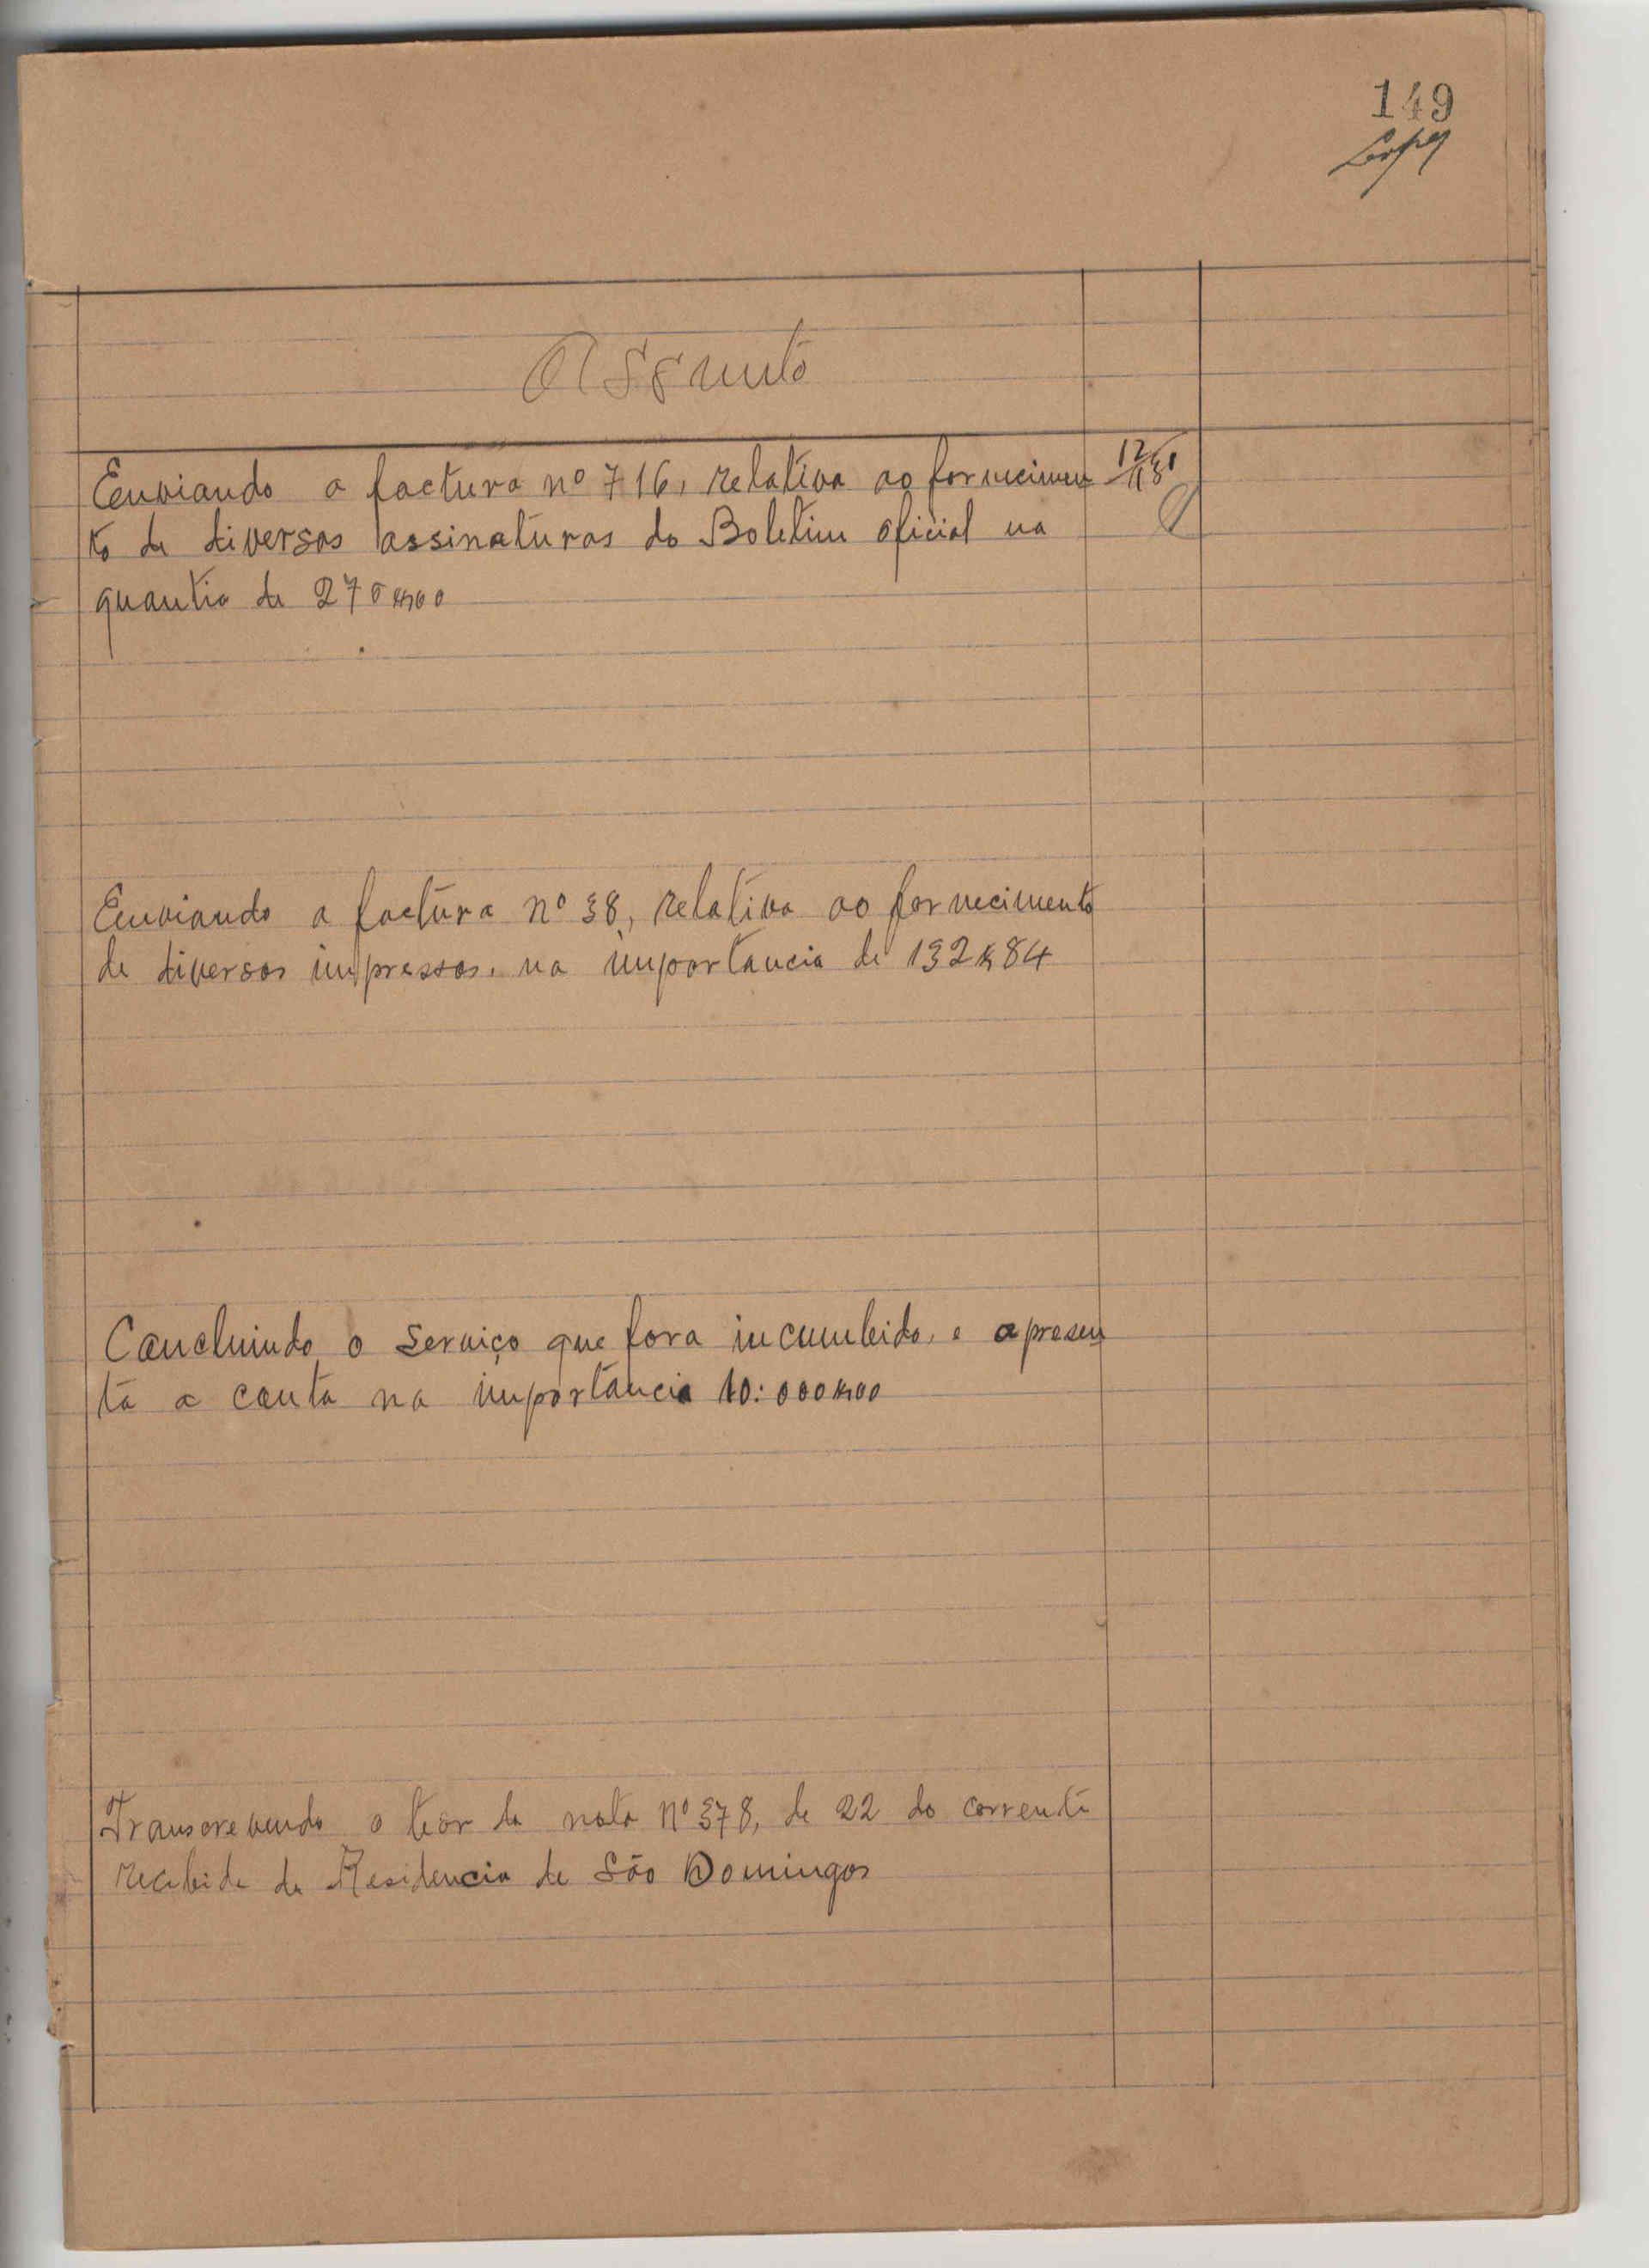 149
Lopes
Assunto
Enviando a factura nº 716, relativa ao fornecimen
to de diversas assinaturas do Boletim oficial na
quantia de 270$00
Enviando a factura nº 38, relativa ao fornecimento
de diversos impressos, na importancia de 132$84
Concluindo o serviço que fora incumbido, e apresen
ta a conta na importancia 10:000$00
Transcrevendo o teor da nota nº 378, de 22 do corrente
recebida da Residencia de São Domingos